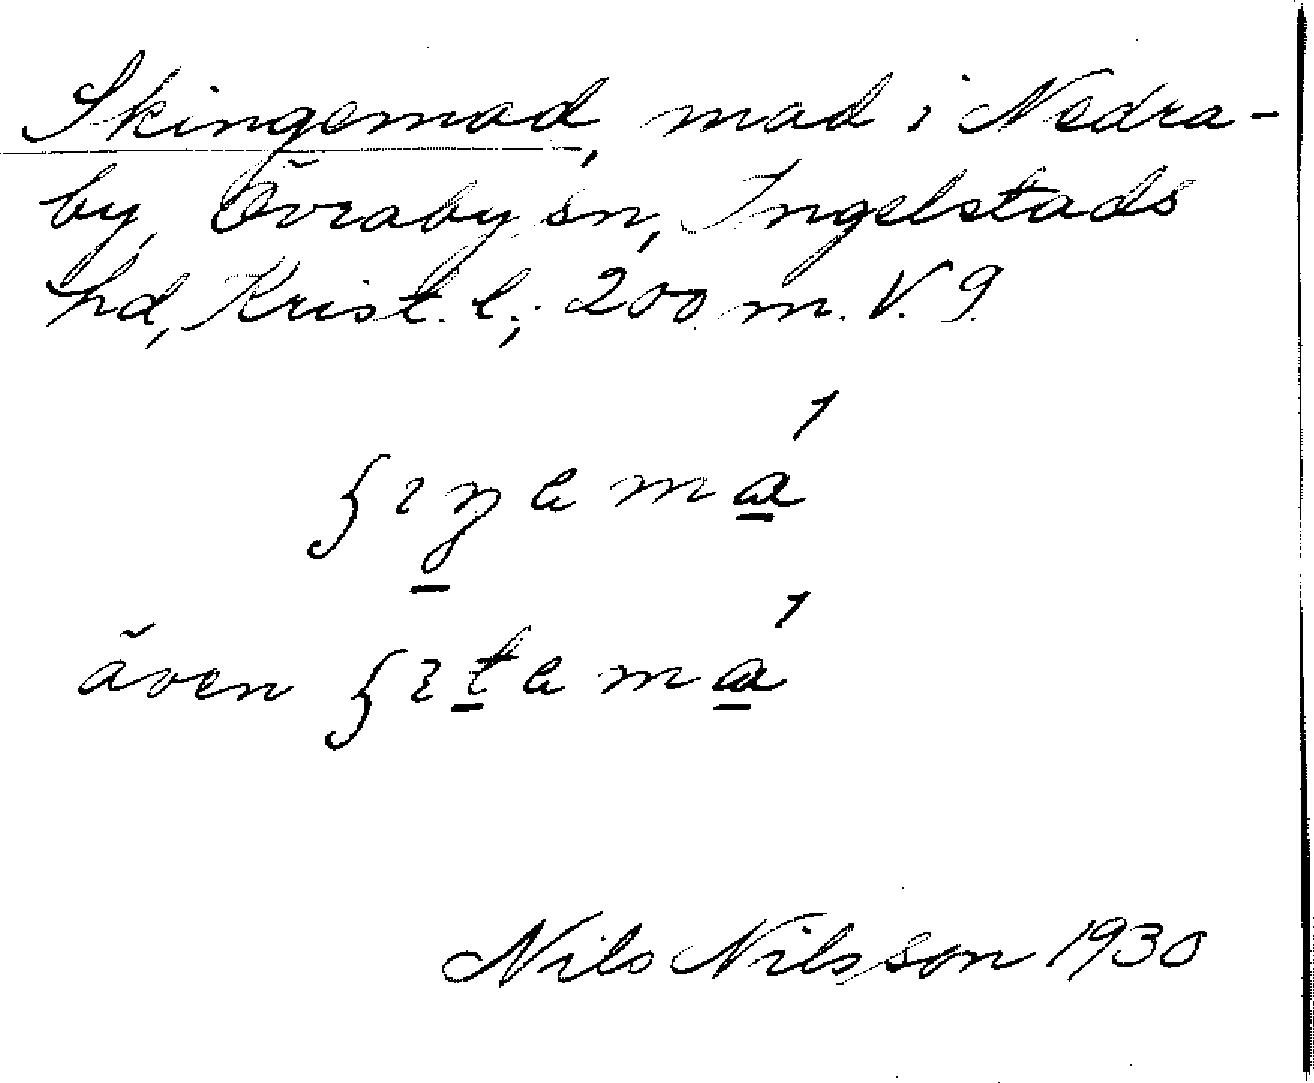 Skingemad, mad i Nedra-
by, Övraby sn, Ingelstads
hd, Krist. l.; 200 m. V. g
även
Nils Nilsson 1930